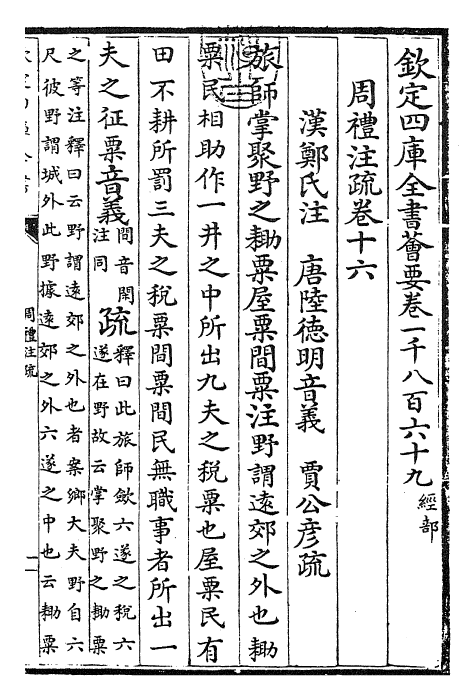 欽定四庫全書薈要卷一千八百六十九 經部
周禮注疏卷十六
漢鄭氏注 唐陸德明音義 賈公彦疏
旅師掌聚野之耡粟屋粟間粟注野謂遠郊之外也耡
粟民相助作一井之中所出九夫之税粟也屋粟民有
田不耕所罰三夫之税粟間粟間民無職事者所出一
夫之征粟音義間音閑注同疏釋曰此旅師斂六遂之税六遂在野故云掌聚野之耡粟
之等注釋曰云野謂遠郊之外也者案鄉大夫野自六
尺彼野謂城外此野據遠郊之外六遂之中也云耡粟
周禮注疏